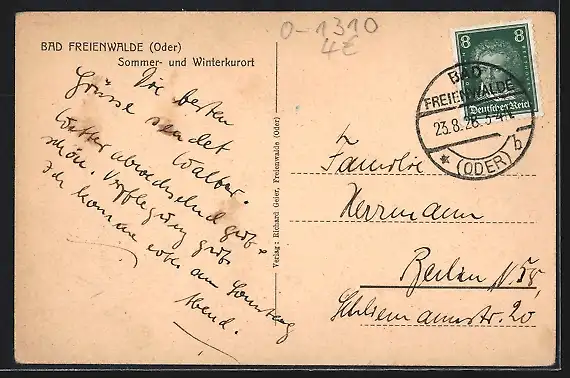 O-1310
4E
BAD FREIENWALDE (Oder)
Sommer- und Winterkurort
Die besten
Grüsse sendet
Walter.
Wetter abwechselnd
schön. Verpflegung gut.
Ich komme erst am Sonntag
Abend.
Verlag: Richard Geier, Freienwalde (Oder)
8
8
Deutsches Reich
BAD
FREIENWALDE
23.8.28.
(ODER)
b
Familie
Herrmann
Berlin
Schliemannstr. 20